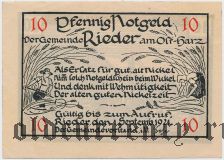 10 Pfennig Notgeld 10
Der Gemeinde Rieder am Ost-Harz
Als Ersatz für gut alt Nickel
Nimm solch Notgeldschein beim Wickel
Und denk mit Wehmütigkeit
Der alten guten Nickelzeit
Gültig bis zum Aufruf
Rieder den 1. Septemb. 1921
Der Gemeindevorstand
10 10
oldthing